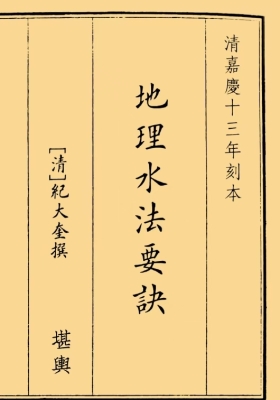 清嘉慶十三年刻本
地理水法要訣
［清］紀大奎撰
堪輿